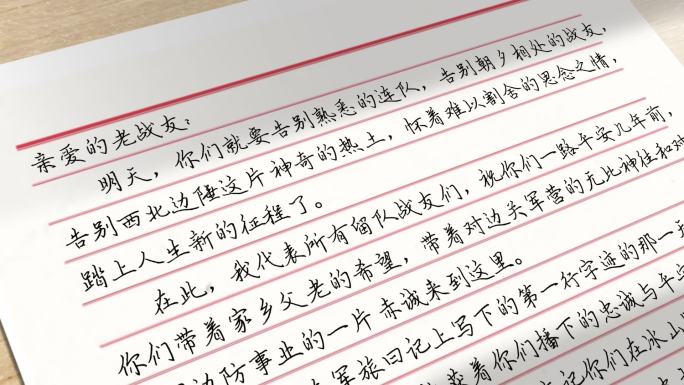 亲爱的老战友：
明天，你们就要告别熟悉的连队，告别朝夕相处的战友，
告别西北边陲这片神奇的热土，怀着难以割舍的思念之情，
踏上人生新的征程了。
在此，我代表所有留队战友们，祝你们一路平安几年前，
你们带着家乡父老的希望，带着对边关军营的无比神往和对
边防事业的一片赤诚来到这里。
军旅日记上写下的第一行字迹的那一天
着你们播下的忠诚与平安
记你们在冰山